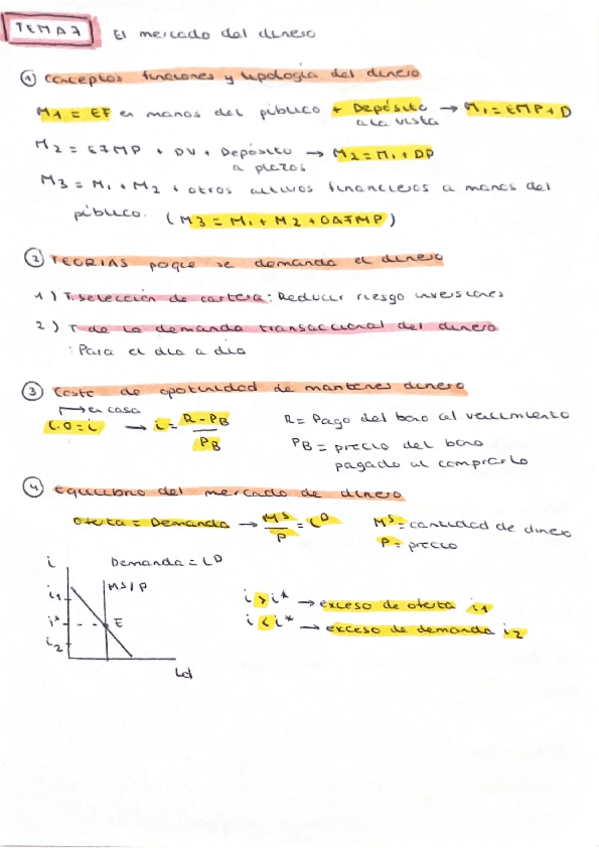 TEMA 7 El mercado del dinero
① conceptos funciones y tipologia del dinero
M1 = EF en manos del público + Depósito a la vista → M1 = EMP + D
M2 = EFMP + DV + Depósito a plazos → M2 = M1 + DP
M3 = M1 + M2 + otros activos financieros a manos del
público. (M3 = M1 + M2 + OAFMP)
② TEORIAS poque se demanda el dinero
1) T. selección de cartera: Reducir riesgo inversiones
2) T de la demanda transaccional del dinero
: Para el dia a dia
③ Coste de oportuidad de mantener dinero
→ en casa
C.O = i → i = R - PB / PB
R = Pago del bono al vencimiento
PB = precio del bono
pagado al comprarlo
④ Equilibrio del mercado de dinero
Oferta = Demanda → MS / P = LD
MS = cantidad de dinero
P = precio
i Demanda = LD
MS/P
i1
i* E
i2
Ld
i > i* → exceso de oferta i1
i < i* → exceso de demanda i2